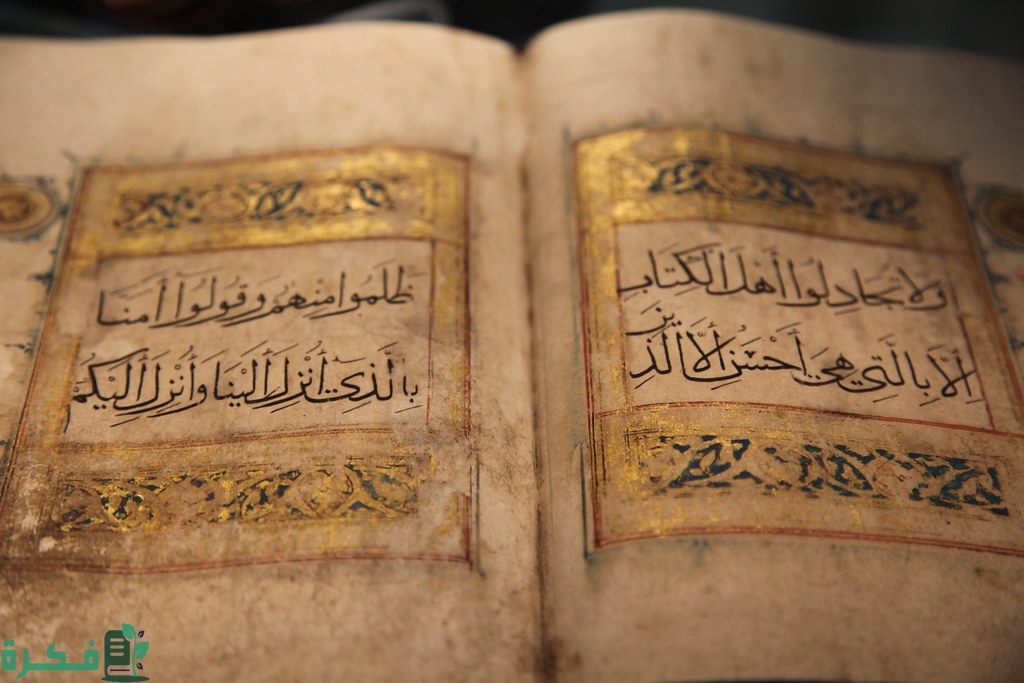 وَلَا تُجَادِلُوا أَهْلَ الْكِتَابِ
إِلَّا بِالَّتِي هِيَ أَحْسَنُ إِلَّا الَّذِينَ
ظَلَمُوا مِنْهُمْ وَقُولُوا آمَنَّا
بِالَّذِي أُنْزِلَ إِلَيْنَا وَأُنْزِلَ إِلَيْكُمْ
فكرة